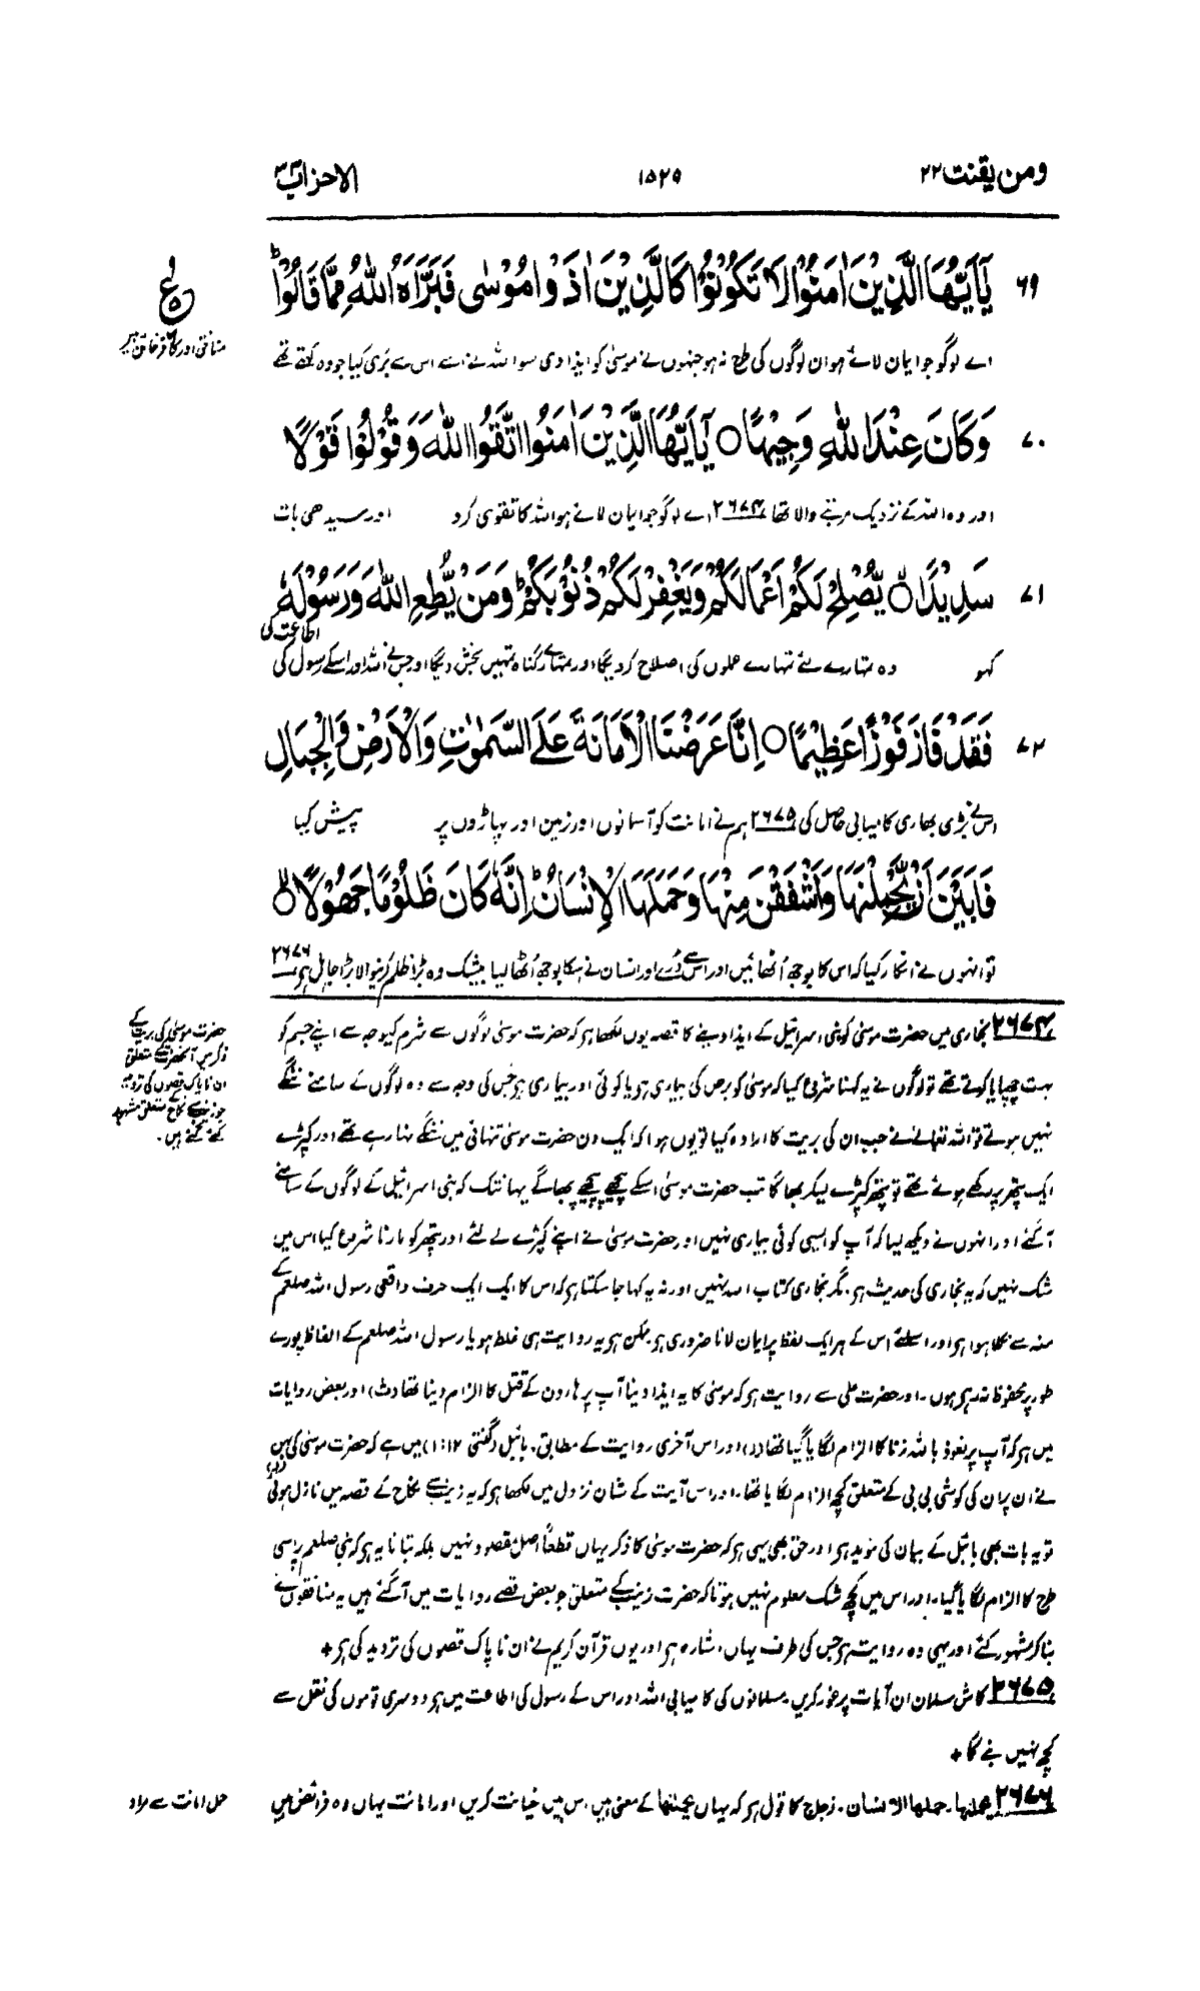 ومن یقنت ۲۲
۱۵۲۹
الاحزاب ۳۳
۶۹ یٰۤاَیُّهَا الَّذِیْنَ اٰمَنُوْا لَا تَكُوْنُوْا كَالَّذِیْنَ اٰذَوْا مُوْسٰى فَبَرَّاَهُ اللّٰهُ مِمَّا قَالُوْا ؕ
اے لوگو جو ایمان لائے ہو ان لوگوں کی طرح نہ ہو جنہوں نے موسیٰ کو ایذا دی سو اللہ نے اسے اس سے بری کیا جو وہ کہتے تھے
۷۰ وَكَانَ عِنْدَ اللّٰهِ وَجِیْهًا ○ یٰۤاَیُّهَا الَّذِیْنَ اٰمَنُوا اتَّقُوا اللّٰهَ وَقُوْلُوْا قَوْلًا
اور وہ اللہ کے نزدیک مرتبے والا تھا ۲۶۷۴ اے لوگو جو ایمان لائے ہو اللہ کا تقویٰ کرو اور سیدھی بات
۷۱ سَدِیْدًا ○ یُّصْلِحْ لَكُمْ اَعْمَالَكُمْ وَیَغْفِرْ لَكُمْ ذُنُوْبَكُمْ ؕ وَمَنْ یُّطِعِ اللّٰهَ وَرَسُوْلَهٗ
کہو وہ تمہارے لئے تمہارے عملوں کی اصلاح کر دیگا اور تمہارے گناہ تمہیں بخش دیگا اور جس نے اللہ اور اسکے رسول کی اطاعت کی
۷۲ فَقَدْ فَازَ فَوْزًا عَظِیْمًا ○ اِنَّا عَرَضْنَا الْاَمَانَةَ عَلَى السَّمٰوٰتِ وَالْاَرْضِ وَالْجِبَالِ
اس نے بڑی بھاری کامیابی حاصل کی ۲۶۷۵ ہم نے امانت کو آسمانوں اور زمین اور پہاڑوں پر پیش کیا
فَاَبَیْنَ اَنْ یَّحْمِلْنَهَا وَاَشْفَقْنَ مِنْهَا وَحَمَلَهَا الْاِنْسَانُ ؕ اِنَّهٗ كَانَ ظَلُوْمًا جَهُوْلًا ○
تو انہوں نے انکار کیا کہ اس کا بوجھ اُٹھائیں اور اس سے ڈرے اور انسان نے اسکا بوجھ اُٹھا لیا بیشک وہ بڑا ظلم کرنیوالا بڑا جاہل ہے ۲۶۷۶
۲۶۷۴ بخاری میں حضرت موسیٰ کو بنی اسرائیل کے ایذا دینے کا قصہ یوں لکھا ہے کہ حضرت موسیٰ لوگوں سے شرم کیوجہ سے اپنے جسم کو
بہت چھپایا کرتے تھے تو لوگوں نے یہ کہنا شروع کیا کہ موسیٰ کو برص کی بیماری ہو یا کوئی اور بیماری ہے جس کی وجہ سے وہ لوگوں کے سامنے ننگے
نہیں ہوتے تو اللہ تعالےٰ نے جب ان کی بریت کا ارادہ کیا تو یوں ہوا کہ ایک دن حضرت موسیٰ تنہائی میں ننگے نہا رہے تھے اور کپڑے
ایک پتھر پر رکھے ہوئے تھے تو پتھر کپڑے لیکر بھاگا تب حضرت موسیٰ اسکے پیچھے پیچھے بھاگے یہانتک کہ بنی اسرائیل کے لوگوں کے سامنے
آگئے اور انہوں نے دیکھ لیا کہ آپ کو ایسی کوئی بیماری نہیں اور حضرت موسیٰ نے اپنے کپڑے لے لئے اور پتھر کو مارنا شروع کیا اس میں
شک نہیں کہ یہ بخاری کی حدیث ہے۔ مگر بخاری کتاب اللہ نہیں اور نہ یہ کہا جا سکتا ہے کہ اس کا ایک ایک حرف واقعی رسول اللہ صلعم کے
منہ سے نکلا ہوا ہے اور اسلئے اس کے ہر ایک لفظ پر ایمان لانا ضروری ہے ممکن ہے یہ روایت ہی غلط ہو یا رسول اللہ صلعم کے الفاظ پورے
طور پر محفوظ نہ رہے ہوں۔ اور حضرت علی سے روایت ہے کہ موسیٰ کا یہ ایذا دینا آپ پر ہارون کے قتل کا الزام دینا تھا (دث) اور بعض روایات
میں ہے کہ آپ پر نعوذ باللہ زنا کا الزام لگایا گیا تھا (د) اور اس آخری روایت کے مطابق۔ بائبل (گنتی ۱:۱۲) میں ہے کہ حضرت موسیٰ کی بہن
نے ان پر ان کی کوشی بی بی کے متعلق کچھ الزام لگایا تھا۔ اور اس آیت کے شان نزول میں لکھا ہے کہ یہ زینب کے نکاح کے قصہ میں نازل ہوئی
تو یہ بات بھی بائبل کے بیان کی مؤید ہے اور حق بھی یہی ہے کہ حضرت موسیٰ کا ذکر یہاں قطعاً اصل مقصود نہیں بلکہ بتانا یہ ہے کہ نبی صلعم پر اسی
طرح کا الزام لگایا گیا۔ اور اس میں کچھ شک معلوم نہیں ہوتا کہ حضرت زینب کے متعلق جو بعض قصے روایات میں آگئے ہیں یہ منافقوں نے
بنا کر مشہور کئے اور یہی وہ روایت ہے جس کی طرف یہاں اشارہ ہے اور یوں قرآن کریم نے ان ناپاک قصوں کی تردید کی ہے +
۲۶۷۵ کاش مسلمان ان آیات پر غور کریں مسلمانوں کی کامیابی اللہ اور اس کے رسول کی اطاعت میں ہے دوسری قوموں کی نقل سے
کچھ نہیں بنے گا +
۲۶۷۶ یحملنہا۔ حملہا الانسان۔ زجاج کا قول ہے کہ یہاں یحملنہا کے معنی ہیں اس میں خیانت کریں اور امانت یہاں وہ فرائض ہیں
ع
منافق اور کافر خائن ہیں
حضرت موسیٰ کی بریت کے
ذکر میں آنحضرت کے متعلق
ان ناپاک قصوں کی تردید
جو زینب کے نکاح کے متعلق مشہور
کئے گئے ہیں۔
حمل امانت سے مراد